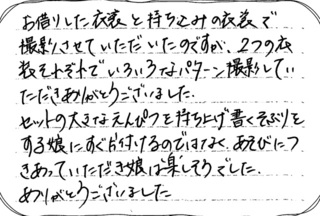 お借りした衣装と持ち込みの衣装で
撮影させていただいたのですが、2つの衣
装それぞれでいろいろなパターン撮影してい
ただきありがとうございました.
セットの大きなえんぴつを持ち上げ書くそぶりを
する娘にすぐ片付けるのではなく、あそびにつ
きあっていただき娘は楽しそうでした.
ありがとうございました